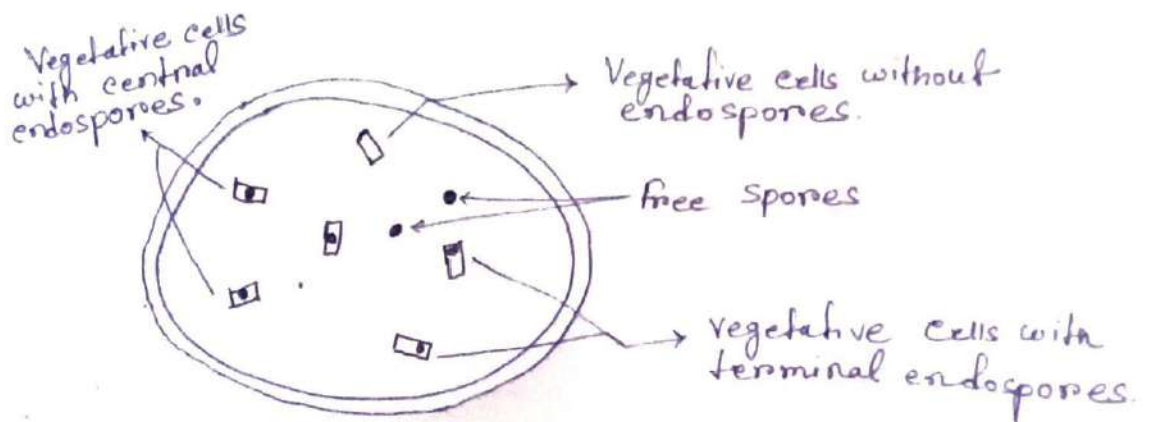 Vegetative cells
with central
endospores.
Vegetative cells without
endospores.
free spores
vegetative cells with
terminal endospores.